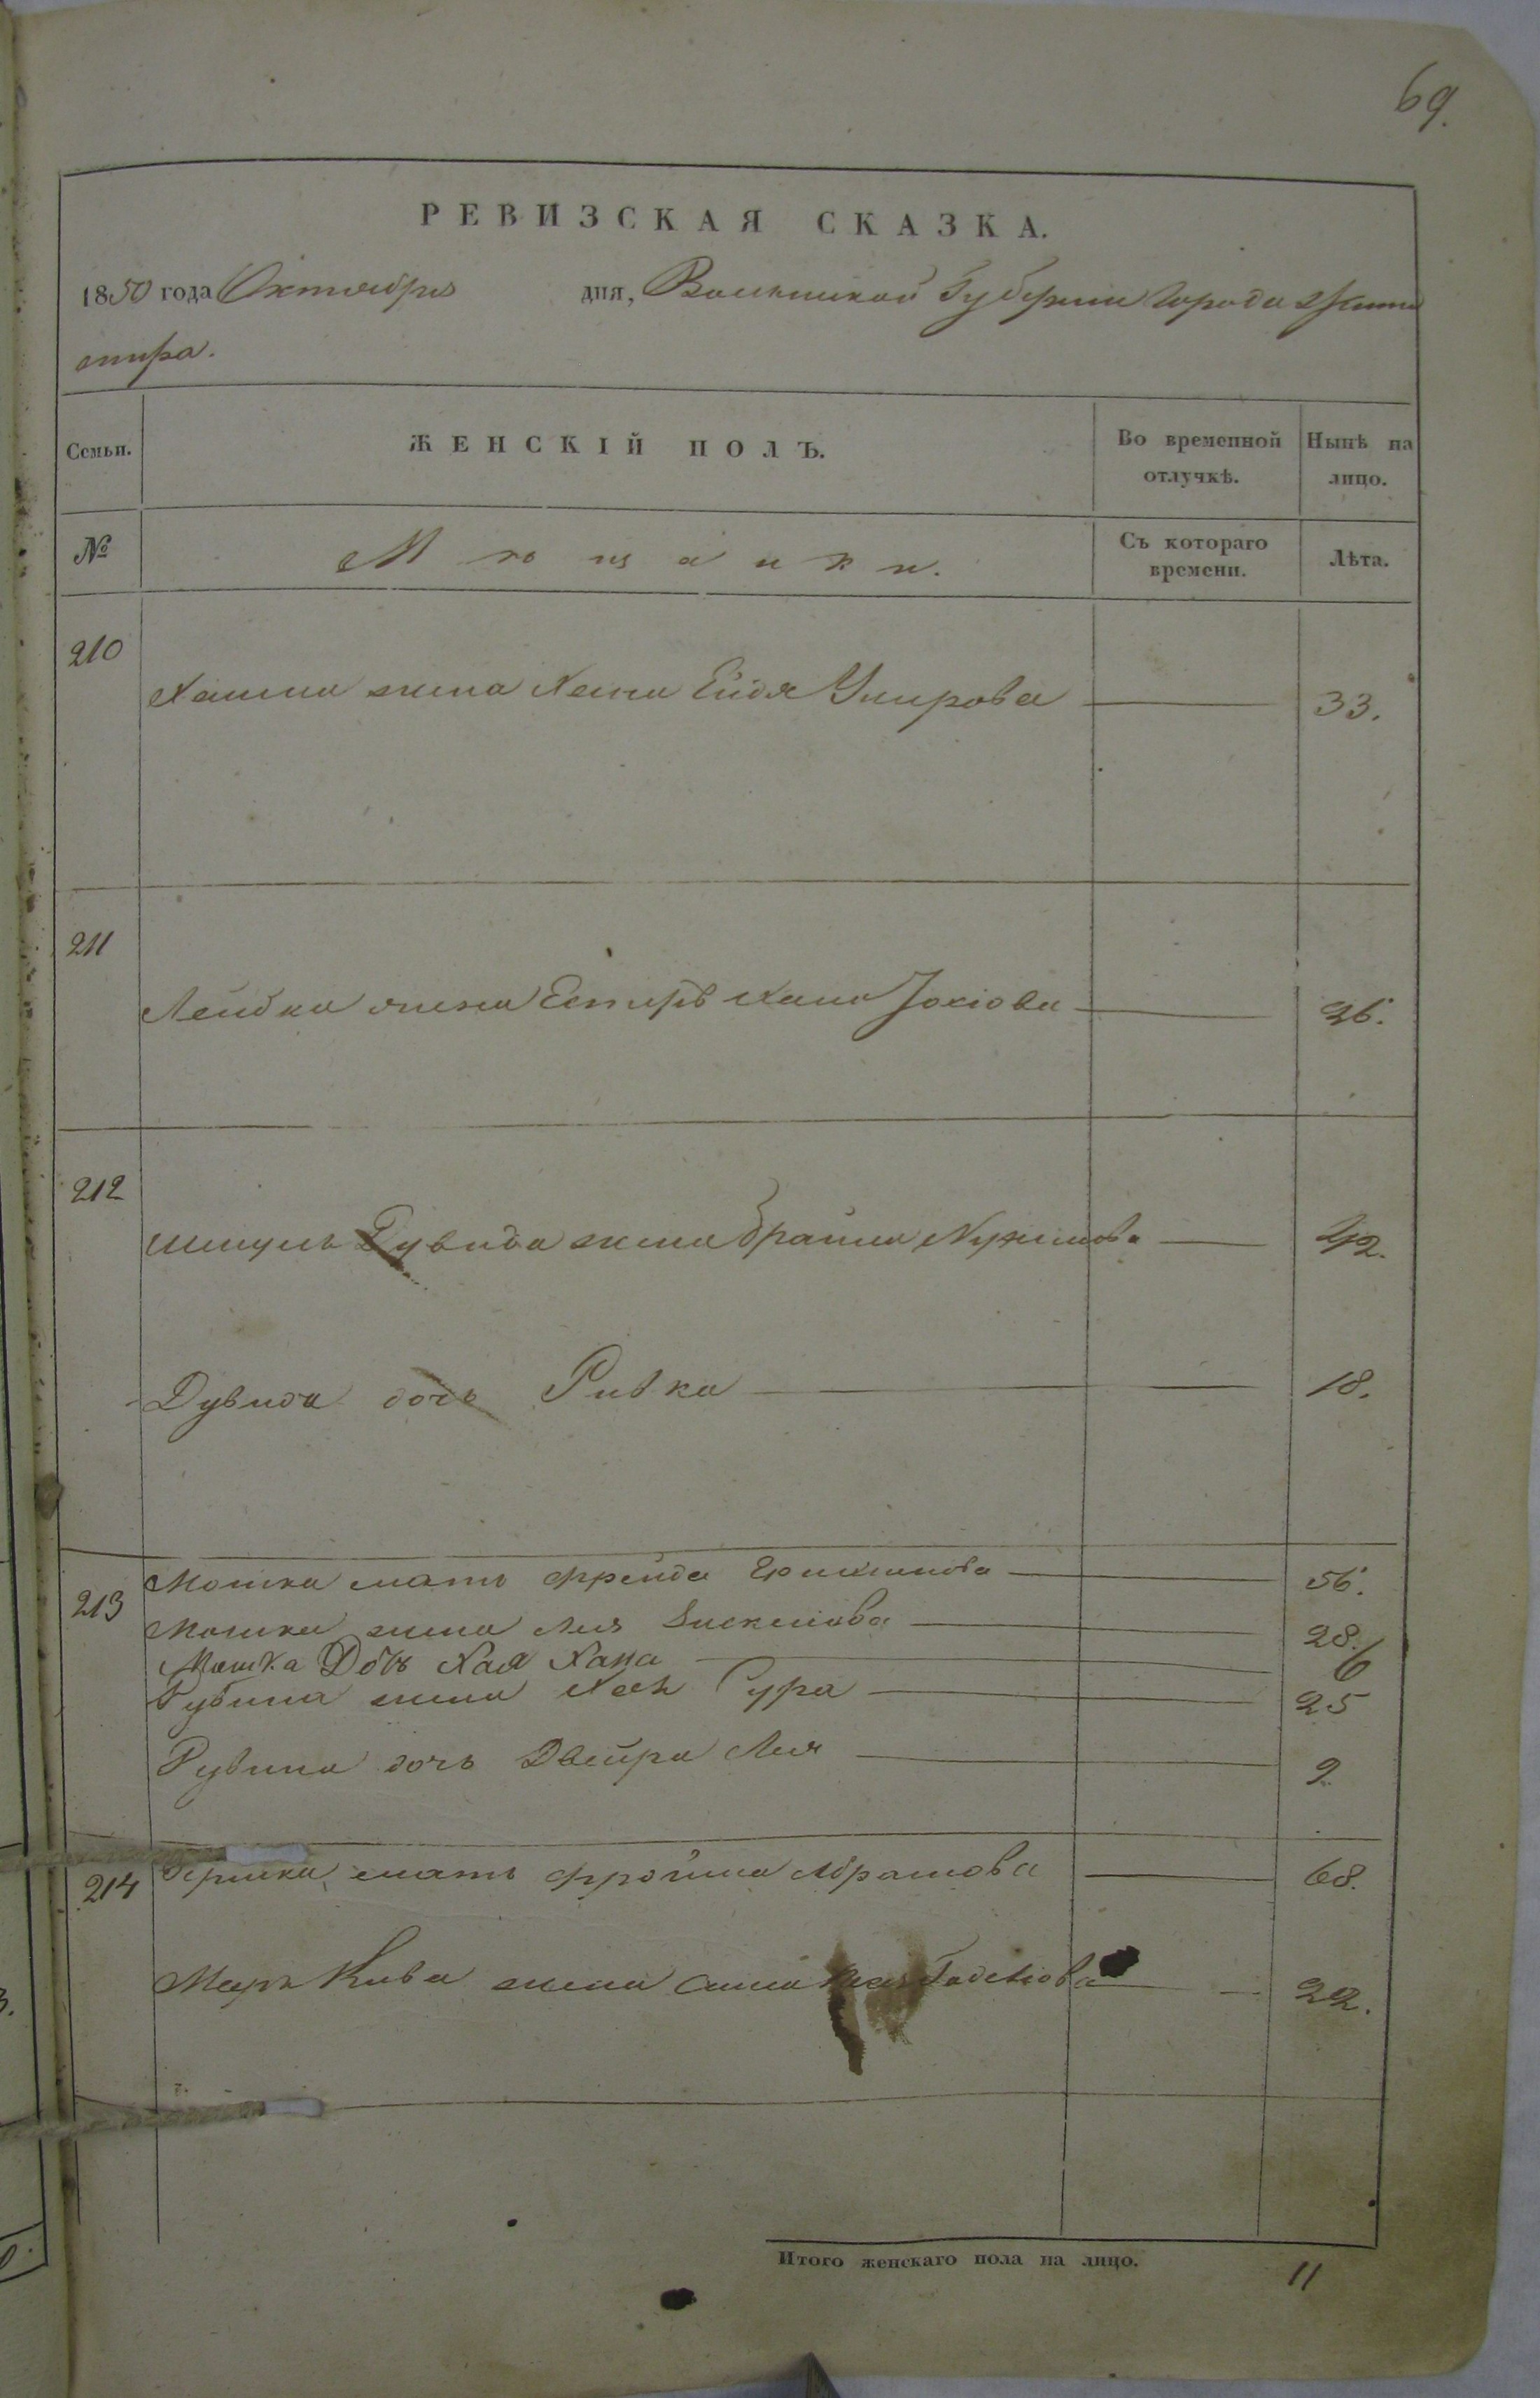 69.
РЕВИЗСКАЯ СКАЗКА.
1850 года Октября дня, Волынской Губернии Города Жито
мира.
Семьи. ЖЕНСКІЙ ПОЛЪ. Во временной отлучкѣ. Нынѣ на лицо.
№ Мѣщанки. Съ котораго времени. Лѣта.
210
Хаима жена Хана Ейдя 33.
211
Лейбка жена Естиръ Хана 26.
212
Шмуль Дувида жена Брайна 42.
Дувида дочь Ривка 18.
213 Мошка мать Фрейда 56.
Мошка жена Лея 28.
Мошка Дочь Хая Хана 6
Рувина жена Хая Сура 25
Рувина дочь Двейра Лея 9.
214 Гершка мать Фройма Абрамова 68.
Меръ Кива жена 22.
Итого женскаго пола на лицо. 11